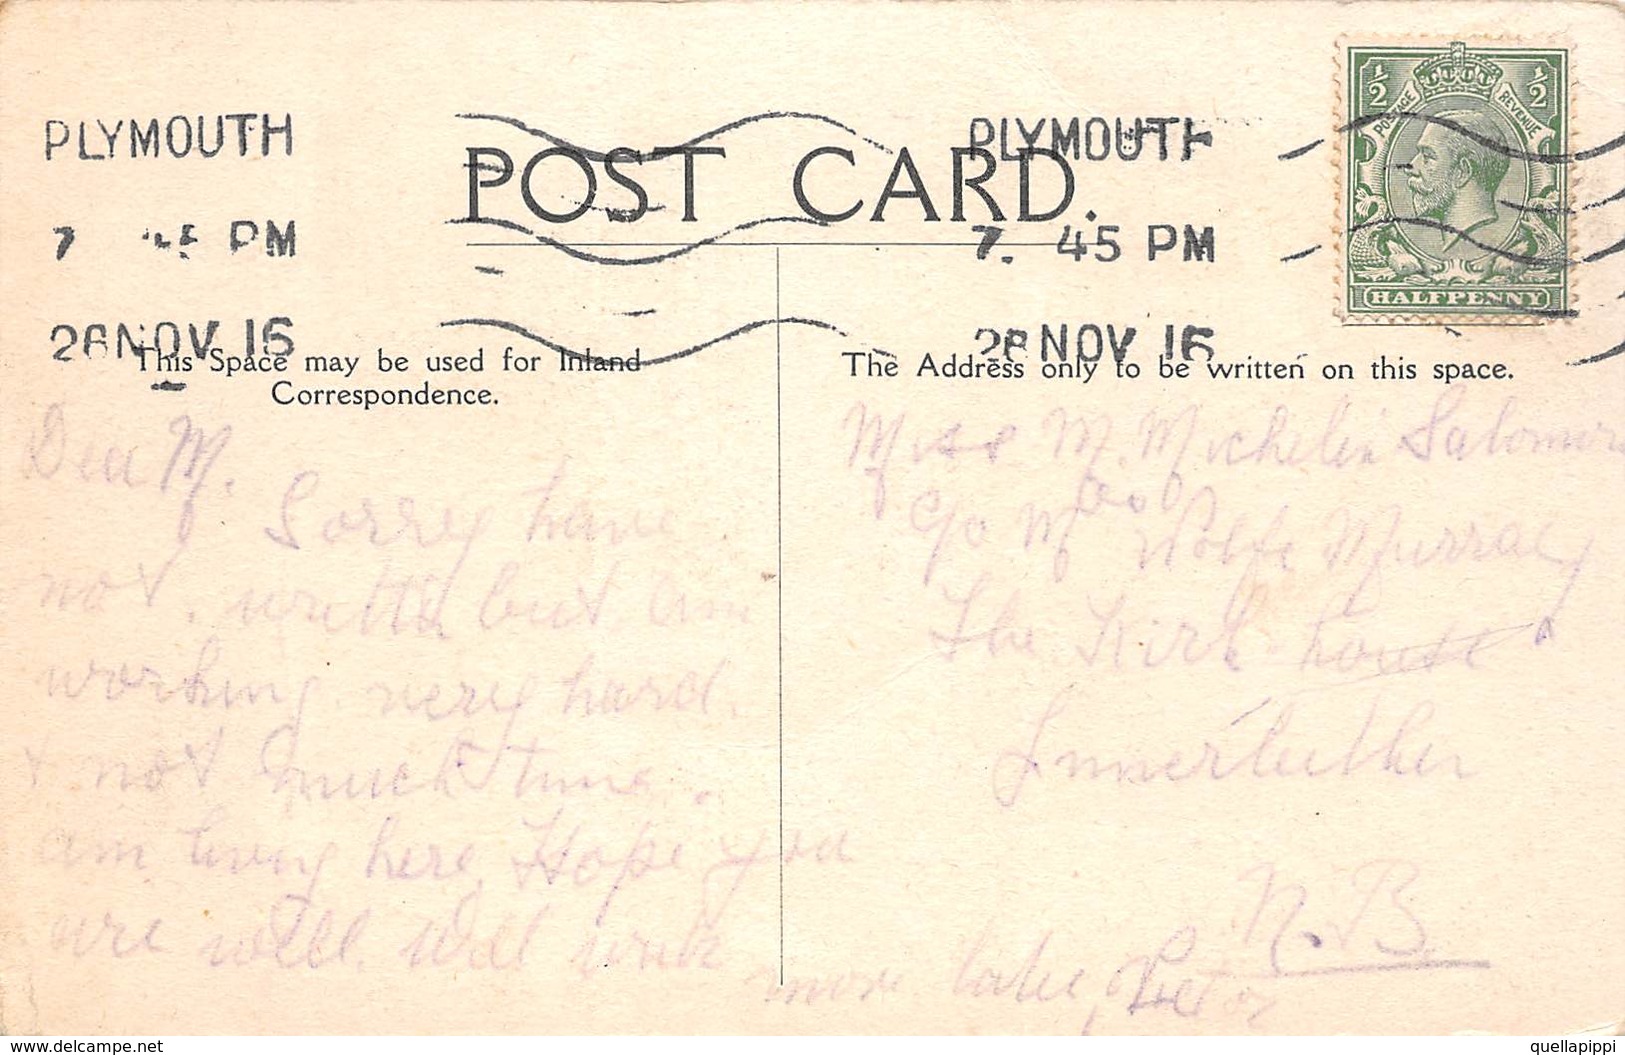 PLYMOUTH
7 45 PM
26 NOV 16
POST CARD.
PLYMOUTH
7. 45 PM
26 NOV 16
½ ½
POSTAGE REVENUE
HALFPENNY
This Space may be used for Inland
Correspondence.
The Address only to be written on this space.
Dear M.
Sorrey have
not. writtn but am
working very hard.
+ not much time.
am living here Hope you
are well. Will write
more later, Peter
Miss M. Michelin
c/o Mrs Col Wolfe Murray
The Kirk house
N.B
www.delcampe.net
quellapippi